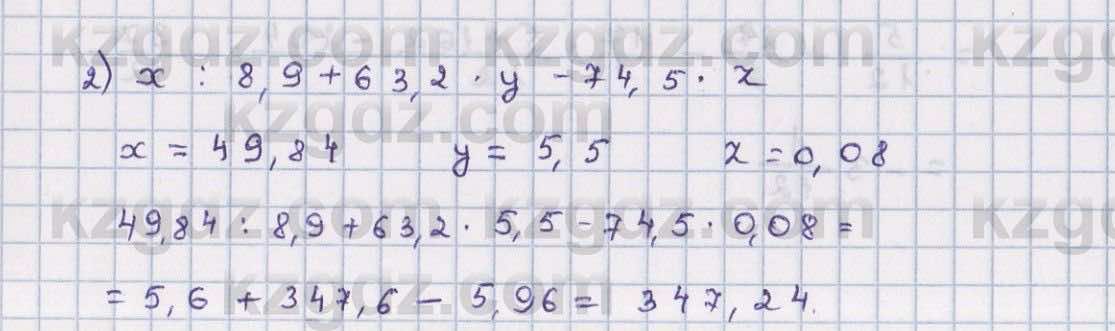 kzgdz.com kzgdz.com kzgdz
2) x : 8,9 + 63,2 · y - 74,5 · z
kzgdz.com
x = 49,84 y = 5,5 z = 0,08
kzgdz.com kzgdz.com kzgdz
49,84 : 8,9 + 63,2 · 5,5 - 74,5 · 0,08 =
kzgdz.com
= 5,6 + 347,6 - 5,96 = 347,24.